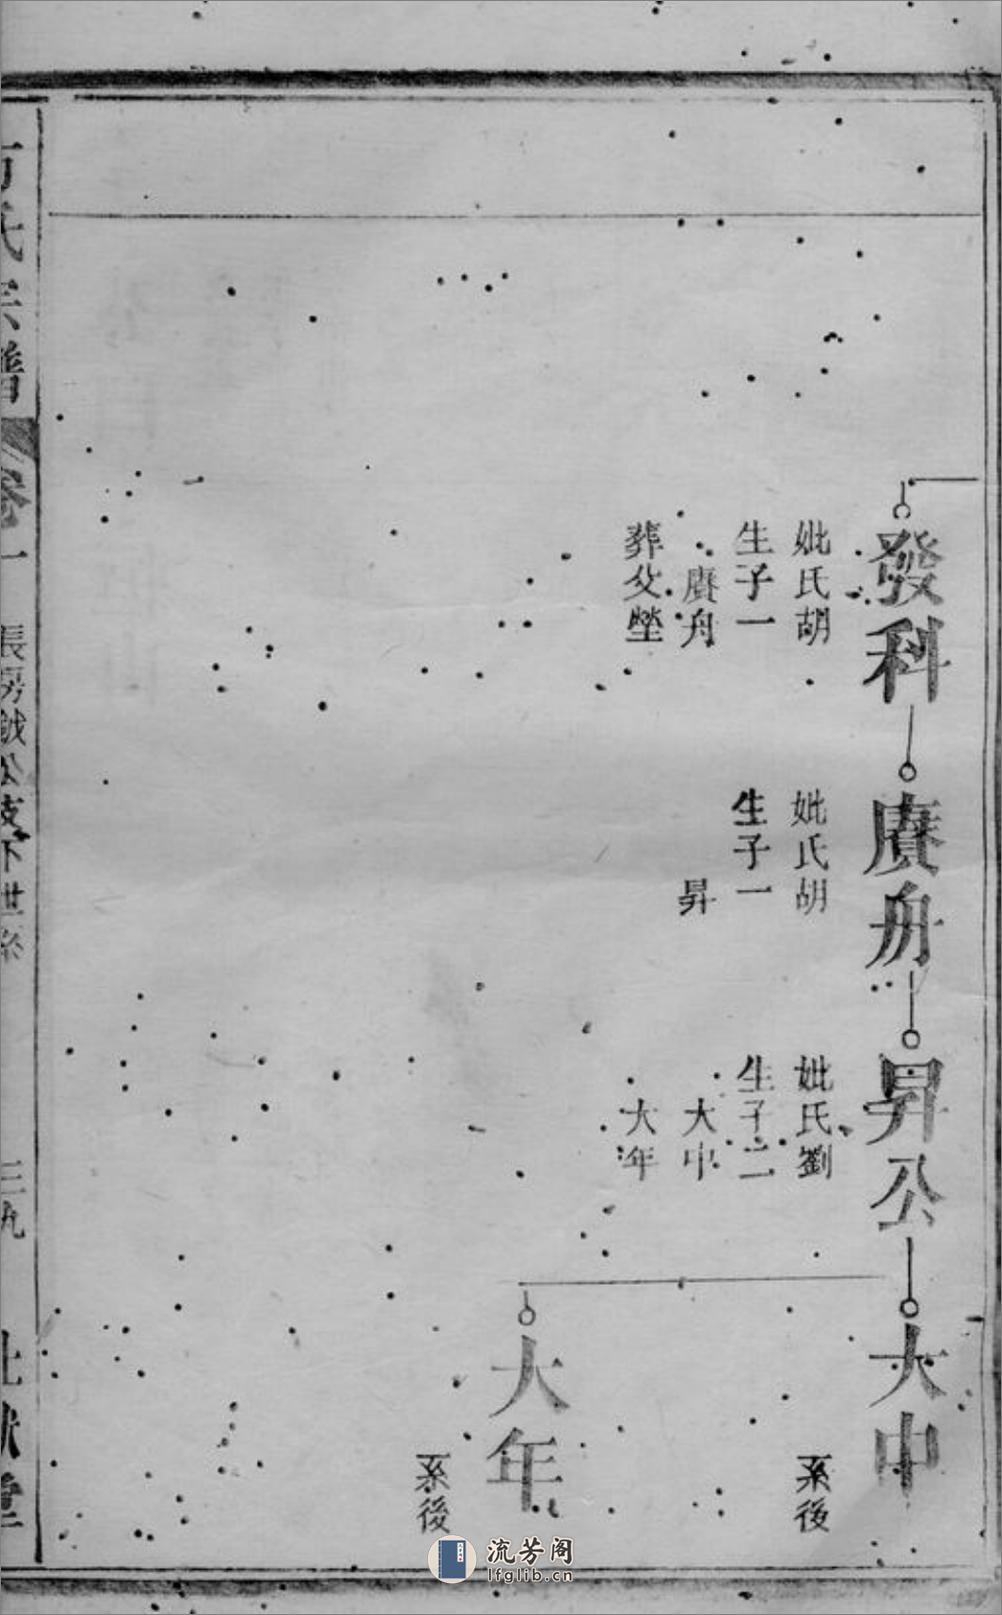 發科
妣氏胡
生子一
賡舟
葬父塋
賡舟
妣氏胡
生子一
昇
昇公
妣氏劉
生子二
大中
大年
大中
系後
大年
系後
氏宗譜
卷一
長房鉞公支下世系
三九
堂
流芳阁
lfglib.cn